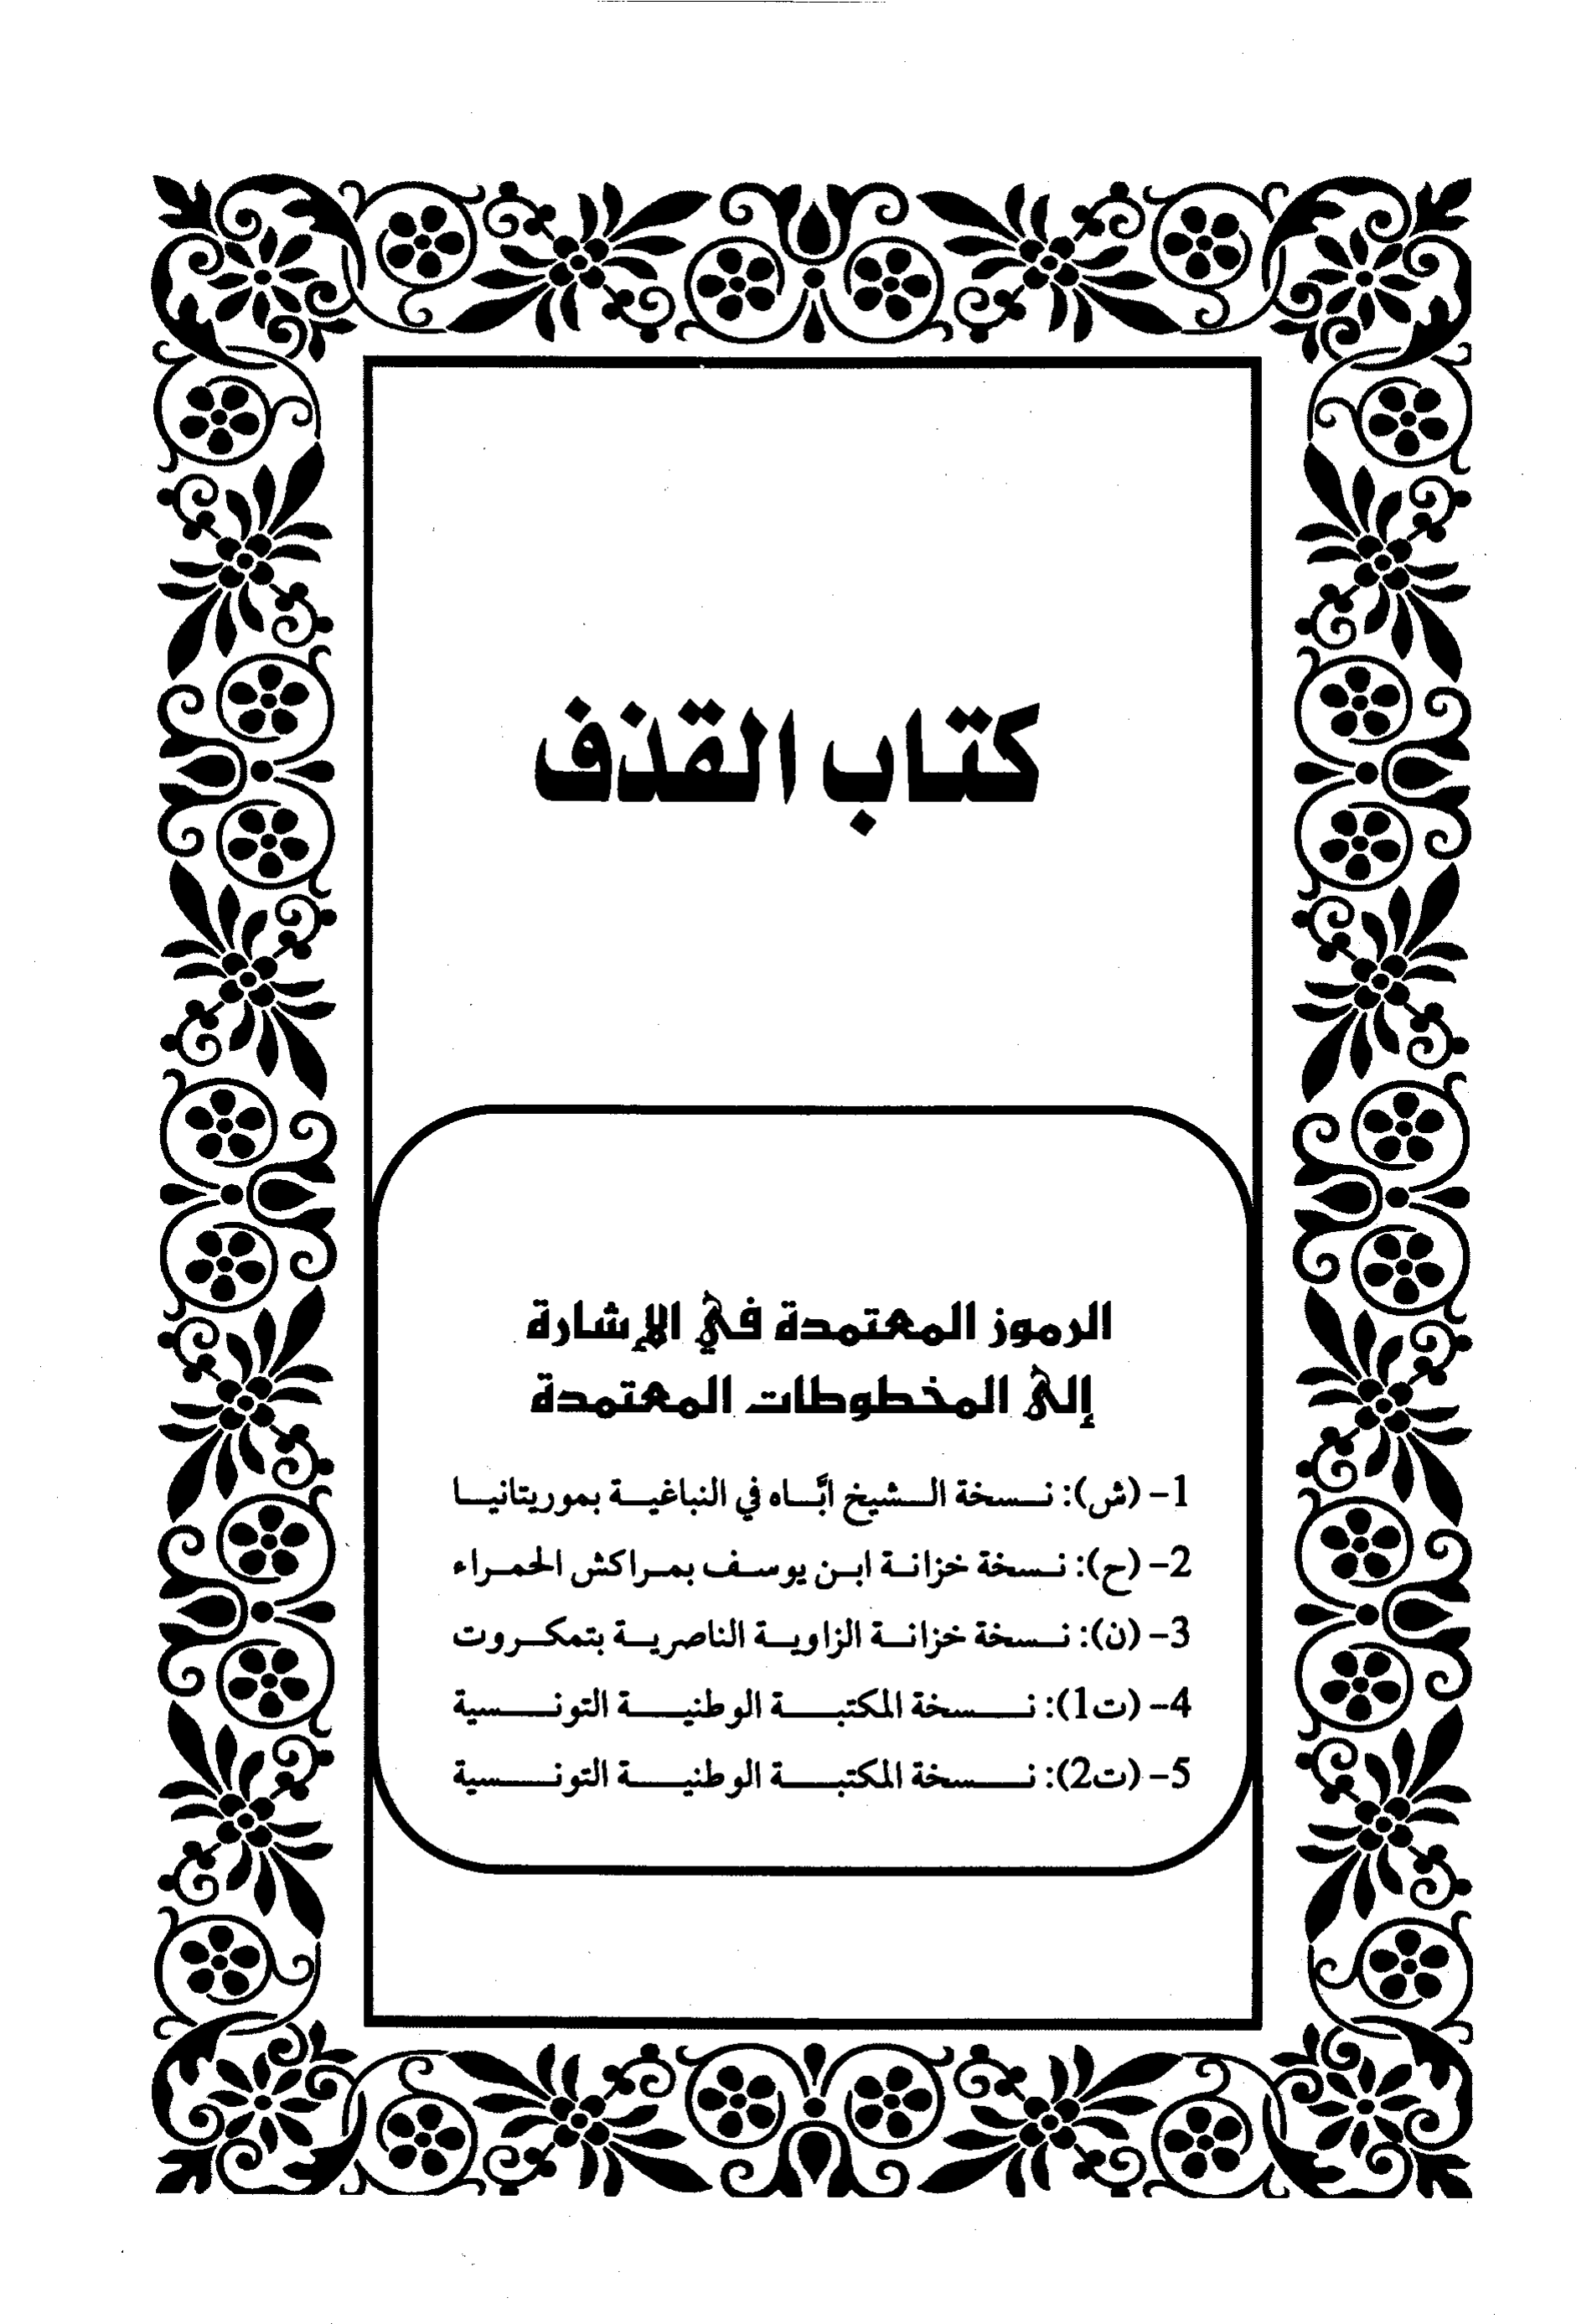 كتاب القذف
الرموز المعتمدة في الإشارة
إلى المخطوطات المعتمدة
1- (ش): نسخة الشيخ ابَّاه في النباغية بموريتانيا
2- (ح): نسخة خزانة ابن يوسف بمراكش الحمراء
3- (ن): نسخة خزانة الزاوية الناصرية بتمكروت
4- (ت1): نسخة المكتبة الوطنية التونسية
5- (ت2): نسخة المكتبة الوطنية التونسية